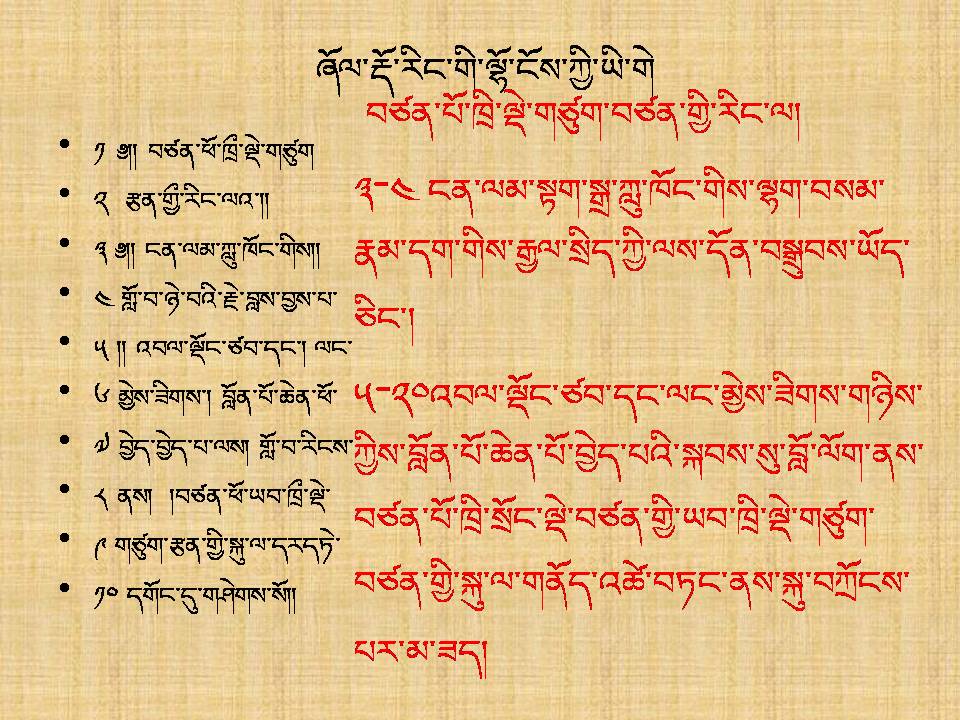 ཞོལ་རྡོ་རིང་གི་ལྷོ་ངོས་ཀྱི་ཡི་གེ
༡ ༄།། བཙན་ཕོ་ཁྲྀ་ལྡེ་གཙུག
༢ རྩན་གྱྀ་རིང་ལའ་།།
༣ ༄།། ངན་ལམ་ཀླུ་ཁོང་གིས།།
༤ གློ་བ་ཉེ་བའི་རྗེ་བླས་བྱས་པ་
༥ །། འབལ་ལྡོང་ཙབ་དང་། ལང་
༦ མྱེས་ཟིགས་། བློན་པོ་ཆེན་ཕོ་
༧ བྱེད་བྱེད་པ་ལས། གློ་བ་རིངས་
༨ ནས། །བཙན་ཕོ་ཡབ་ཁྲྀ་ལྡེ་
༩ གཙུག་རྩན་གྱི་སྐུ་ལ་དརདཏེ་
༡༠ དགོང་དུ་གཤེགས་སོ།།
བཙན་པོ་ཁྲི་ལྡེ་གཙུག་བཙན་གྱི་རིང་ལ།
༣-༤ ངན་ལམ་སྟག་སྒྲ་ཀླུ་ཁོང་གིས་ལྷག་བསམ་
རྣམ་དག་གིས་རྒྱལ་སྲིད་ཀྱི་ལས་དོན་བསྒྲུབས་ཡོད་
ཅིང་།
༥-༢༠འབལ་ལྡོང་ཙབ་དང་ལང་མྱེས་ཟིགས་གཉིས་
ཀྱིས་བློན་པོ་ཆེན་པོ་བྱེད་པའི་སྐབས་སུ་བློ་ལོག་ནས་
བཙན་པོ་ཁྲི་སྲོང་ལྡེ་བཙན་གྱི་ཡབ་ཁྲི་ལྡེ་གཙུག་
བཙན་གྱི་སྐུ་ལ་གནོད་འཚེ་བཏང་ནས་སྐུ་བཀྲོངས་
པར་མ་ཟད།